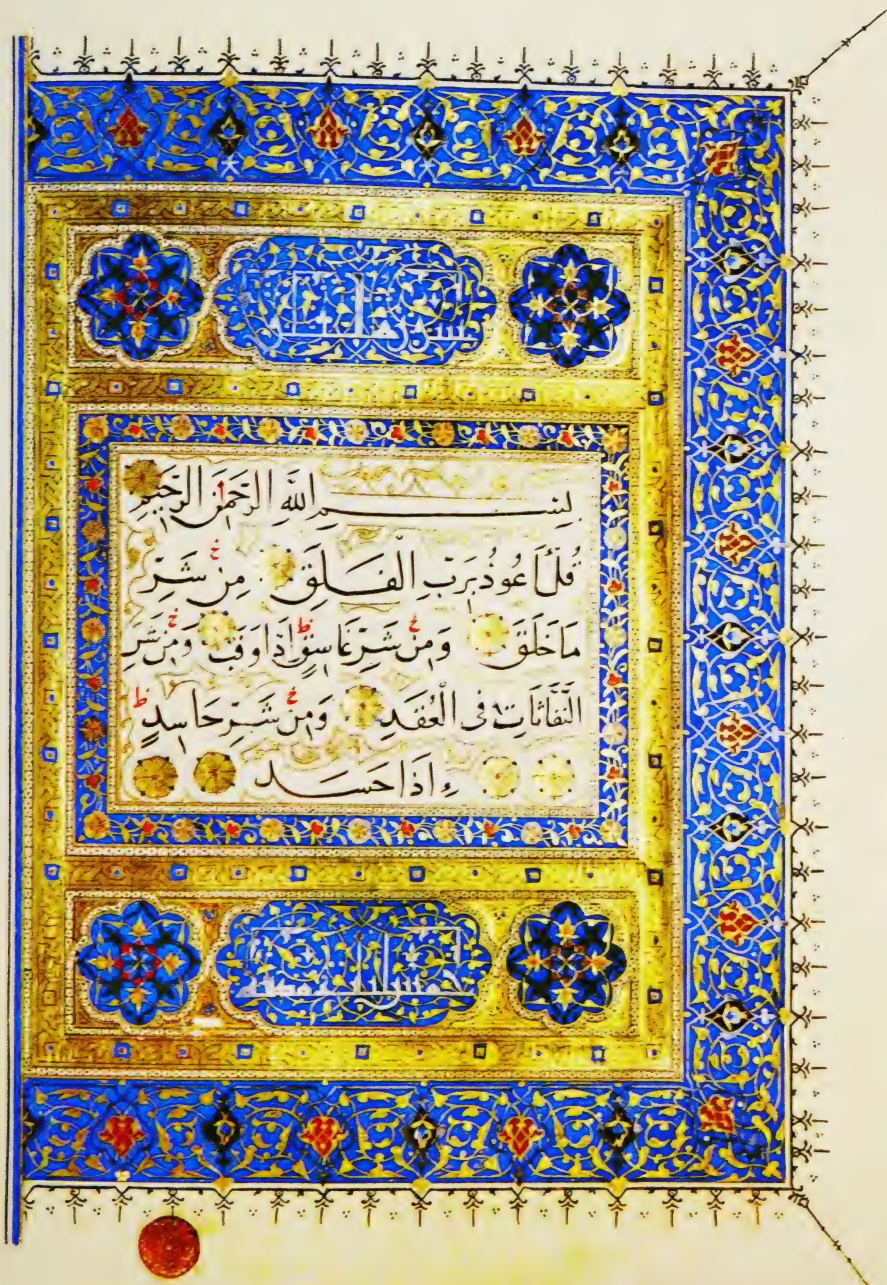 بِسْمِ اللَّهِ الرَّحْمَنِ الرَّحِيمِ
قُلْ أَعُوذُ بِرَبِّ الْفَلَقِ مِنْ شَرِّ
مَا خَلَقَ وَمِنْ شَرِّ غَاسِقٍ إِذَا وَقَبَ وَمِنْ شَرِّ
النَّفَّاثَاتِ فِي الْعُقَدِ وَمِنْ شَرِّ حَاسِدٍ
إِذَا حَسَدَ